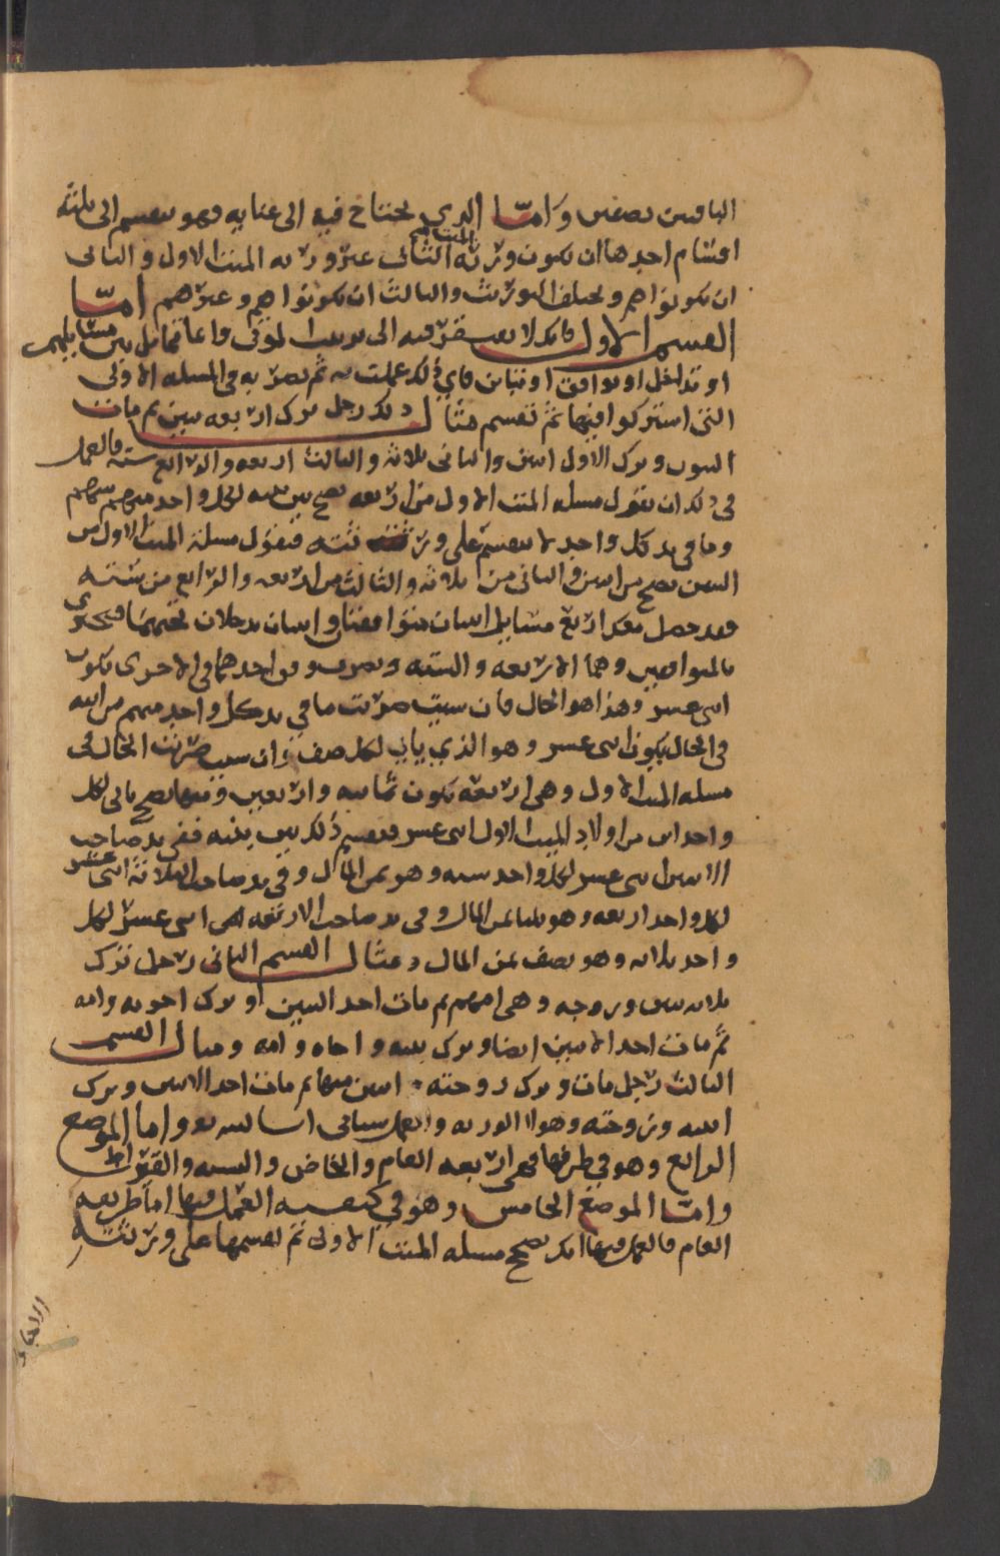 الباقيين نصفين وامّا الذي يحتاج فيه الى عنايه فهو ينقسم الى ثلثه
اقسام احدها ان يكون ورثه الميت الثانى غير ورثه الميت الاول والثانى
ان يكونوا هم ويختلف التوريث والثالث ان يكونوا هم وغيرهم امّا
القسم الاول فانك لا تفتقر فيه الى ترتيب الموتى واعلم
او تداخل او توافق او تباين فاي ذلك عملت به ثم تضربه في المسله الاولى
التي اشتركوا فيها ثم تقسم مثال ذلك رجل ترك اربعه بنين ثم مات
البنون وترك الاول ابنين والثانى ثلاثه والثالث اربعه والرابع سته فالعمل
في ذلك ان تقول مسله الميت الاول من اربعه تصح من بنيه لكل واحد منهم سهم
وما في يد كل واحد لا ينقسم على ورثته فنقول مسلة الميت الاول من
ابنين تصح من اثنين والثانى من ثلاثه والثالث من اربعه والرابع من سته
فقد حصل معك اربع مسايل اثنان متوافقتان واثنان يدخلان تحتهما فتجتزى
بالمتوافقين وهما الاربعه والسته وتضرب وفق احدهما في الاخرى تكون
اثنى عشر وهذا هو الحال فان شيت ضربت ما في يد كل واحد منهم من
في الحال يكون اثنى عشر وهو الذي ياتي لكل صنف وان شيت ضربت الحال في
مسله الميت الاول وهى اربعه تكون ثمانيه واربعين ومنها تصح ياتى لكل
واحد من اولاد الميت الاول اثنى عشر فتقسم ذلك بين بنيه ففى يد صاحب
الابنين اثنى عشر لكل واحد سته وهو ثمن المال وفي يد صاحب الثلاثة اثنى عشر
لكل واحد اربعه وهو ثلثا ثمن المال وفى يد صاحب الاربعه اثنى عشر لكل
واحد ثلاثه وهو نصف ثمن المال ومثال القسم الثانى رجل ترك
ثلاثه بنين وزوجه وهى امهم ثم مات احد البنين وترك اخوته وامه
ثم مات احد الابنين ايضا وترك بنيه واخاه وامه ومثال القسم
الثالث رجل مات وترك زوجته وابنين منها ثم مات احد الابنين وترك
ابنه وزوجته وهولا الورثه والعمل سياتى ان شا الله تع واما الموضع
الرابع وهو في طرقها فهى اربعه العام والخاص والنسبه والقيراط
وامّا الموضع الخامس وهو في كيفيه العمل فيها اما طريقه
العام فالعمل فيها انك تصحح مسله الميت الاولى ثم تقسمها على ورثته